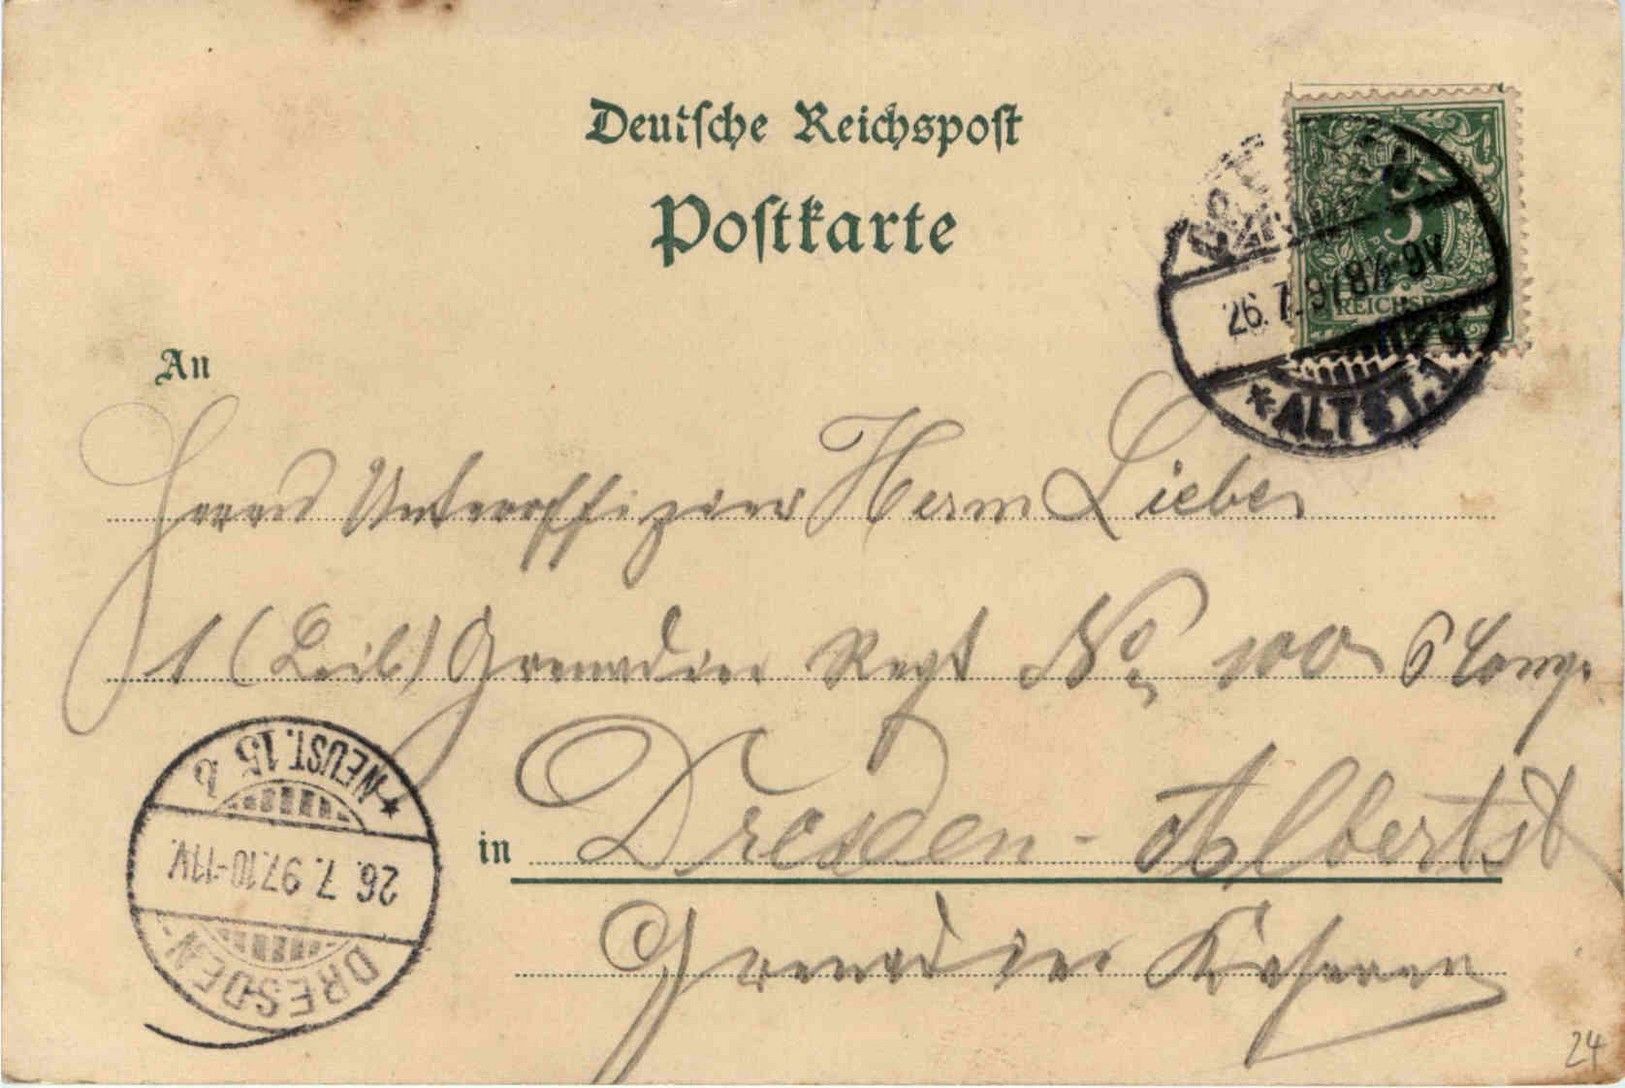 Deutsche Reichspost
Postkarte
5
REICHSPOST
26.7.97 8½-9V.
*ALTST.1
An
Herrn Unteroffizier Herm Lieber
1 (Leib) Grenadier Regt No 100 6 Comp.
in Dresden-Albertst
Grenadier Kaserne
DRESDEN-
26.7.97.10-11V.
*NEUST.15 b
24